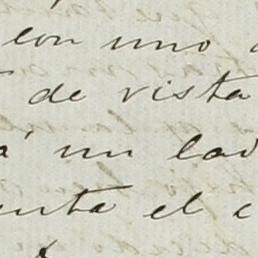 con uno
de vista
á un lad
enta el c